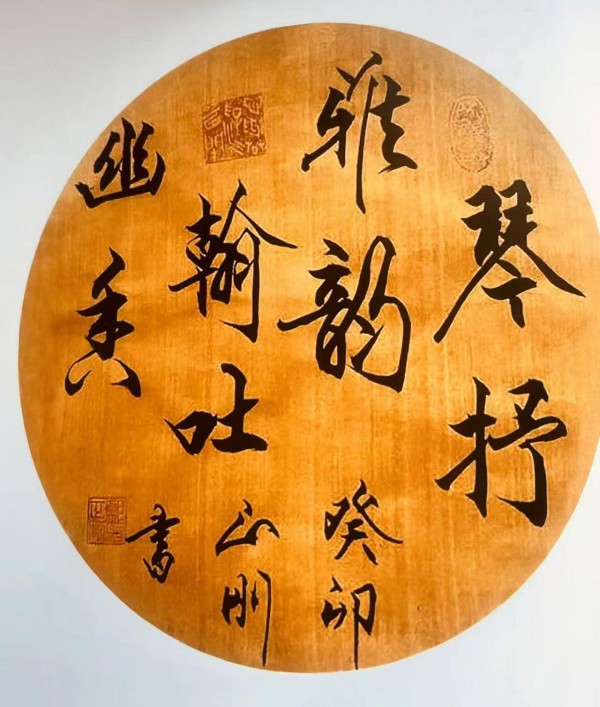 琴抒
雅韵癸卯
翰吐
幽香書